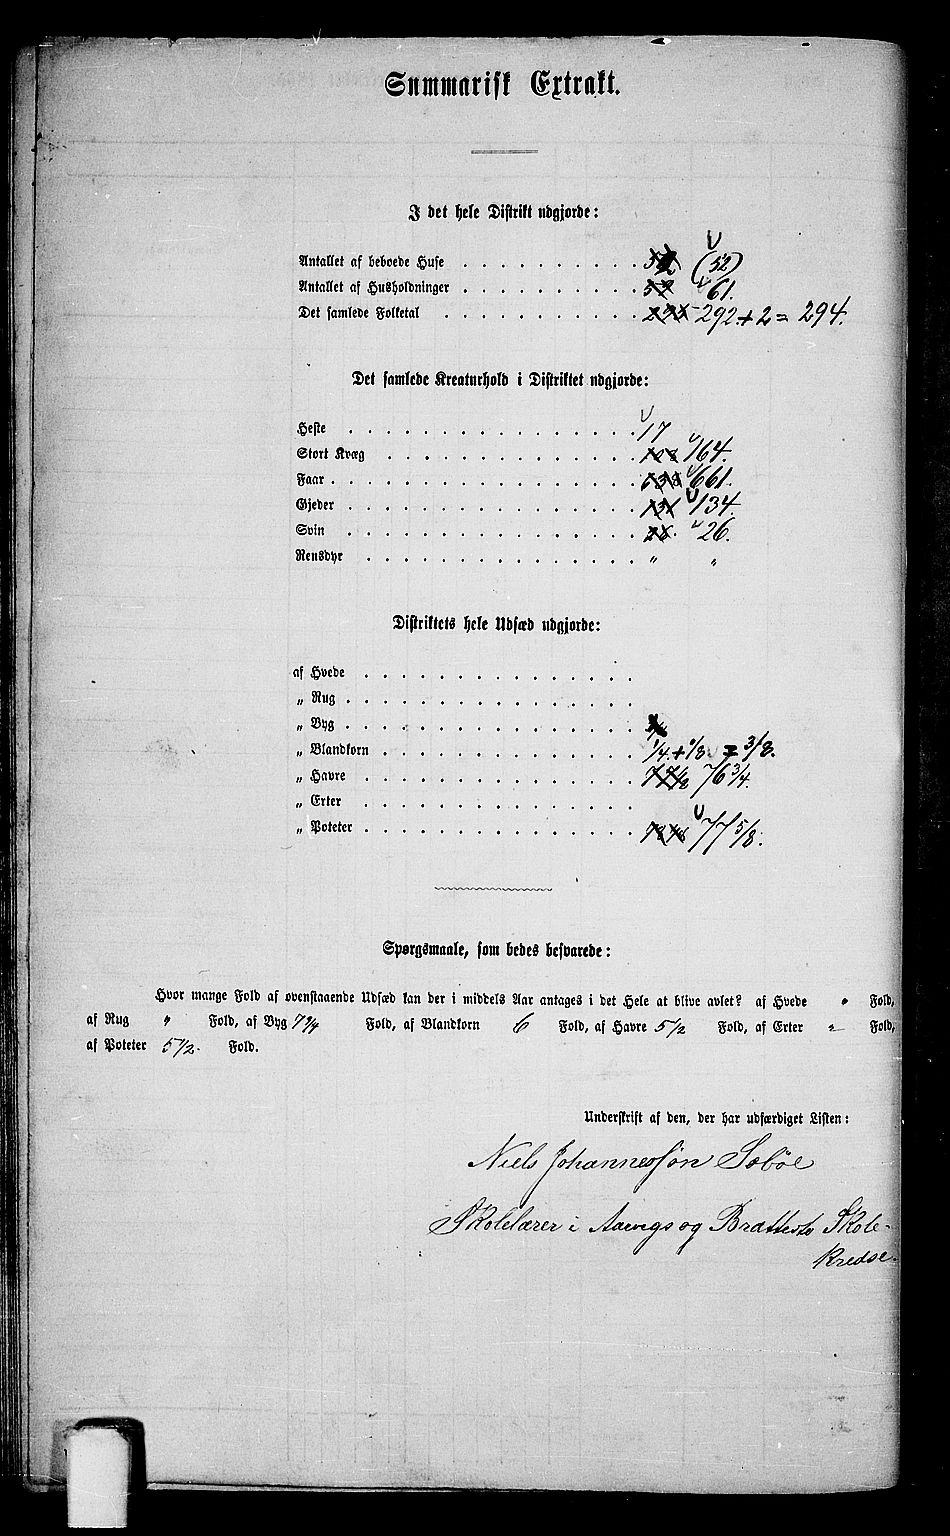 Summarisk Extrakt.
I det hele Distrikt udgjorde:
Antallet af beboede Huse 52 (52)
Antallet af Husholdninger 61.
Det samlede Folketal 292 + 2 = 294.
Det samlede Kreaturhold i Distriktet udgjorde:
Heste 17
Stort Kvæg 164.
Faar 661.
Gjeder 131 134.
Svin 26.
Rensdyr " "
Distriktets hele Udsæd udgjorde:
af Hvede
„ Rug
„ Byg
„ Blandkorn 1/4. + 1/8. = 3/8.
„ Havre 77 1/2 76 3/4.
„ Erter
„ Poteter 77 5/8.
Spørgsmaale, som bedes besvarede:
Hvor mange Fold af ovenstaaende Udsæd kan der i middels Aar antages i det Hele at blive avlet? af Hvede " Fold,
af Rug " Fold, af Byg 7 3/4 Fold, af Blandkorn 6 Fold, af Havre 5 1/2 Fold, af Erter " Fold,
af Poteter 5 1/2. Fold.
Underskrift af den, der har udfærdiget Listen:
Niels Johannessøn Sæbøe
Skolelærer i Aarvigs og Brattebø Skole-
kredse.